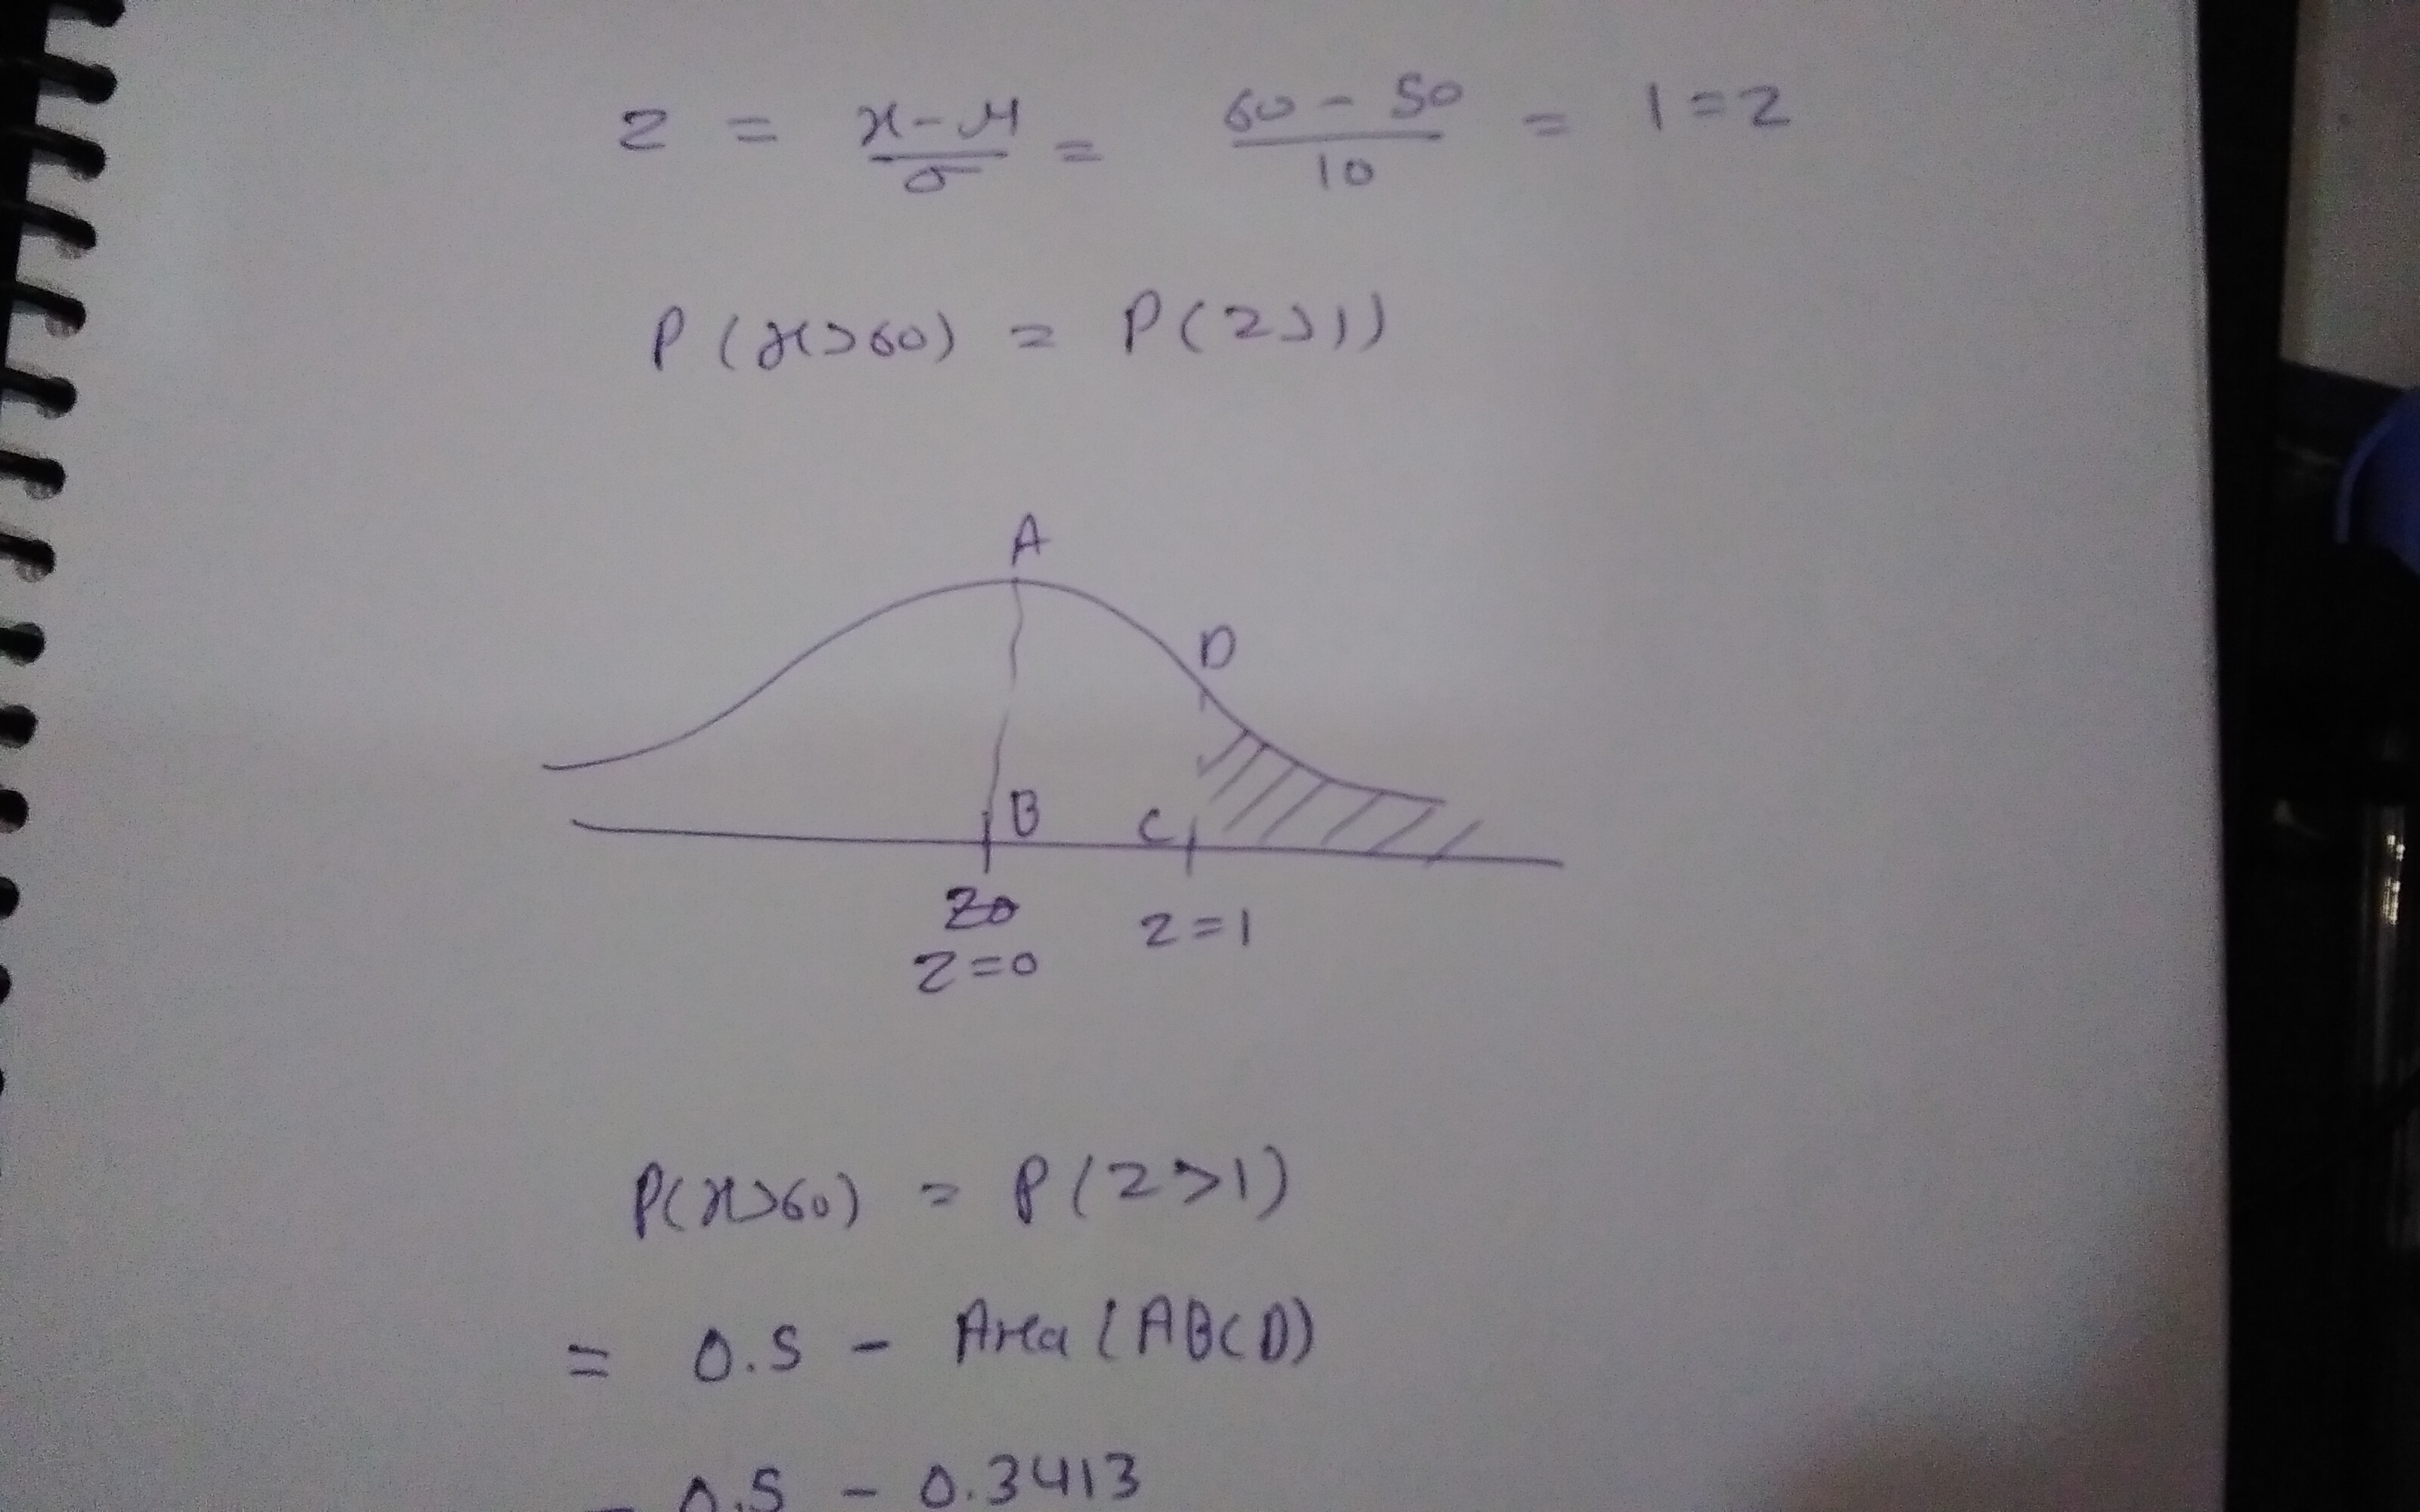 z = x-μ/σ = 60-50/10 = 1=z
P(x>60) = P(z>1)
A
D
B C
z=0 z=1
P(x>60) = P(z>1)
= 0.5 - Area(ABCD)
= 0.5 - 0.3413